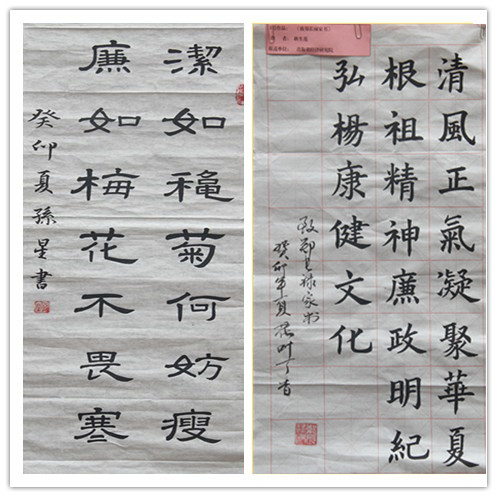 潔如穐菊何妨瘦
廉如梅花不畏寒
癸卯夏孫星書
清風正氣凝聚華夏
根祖精神廉政明紀
弘楊康健文化
癸卯年夏